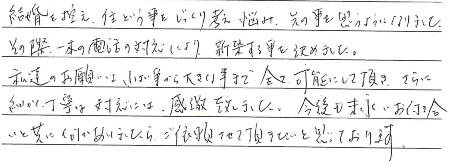 結婚を控え、住という事をじっくり考え悩み、その事を思うようになりました。
その際、一本の電話の対応により新築する事を決めました。
私達のお願いは、小さい事から大きい事まで全て可能にして頂き、さらに
細かい丁寧な対応には、感激致しました。今後も末永いお付き合
いと共に何かありましたら、ご依頼させて頂きたいと思っております。